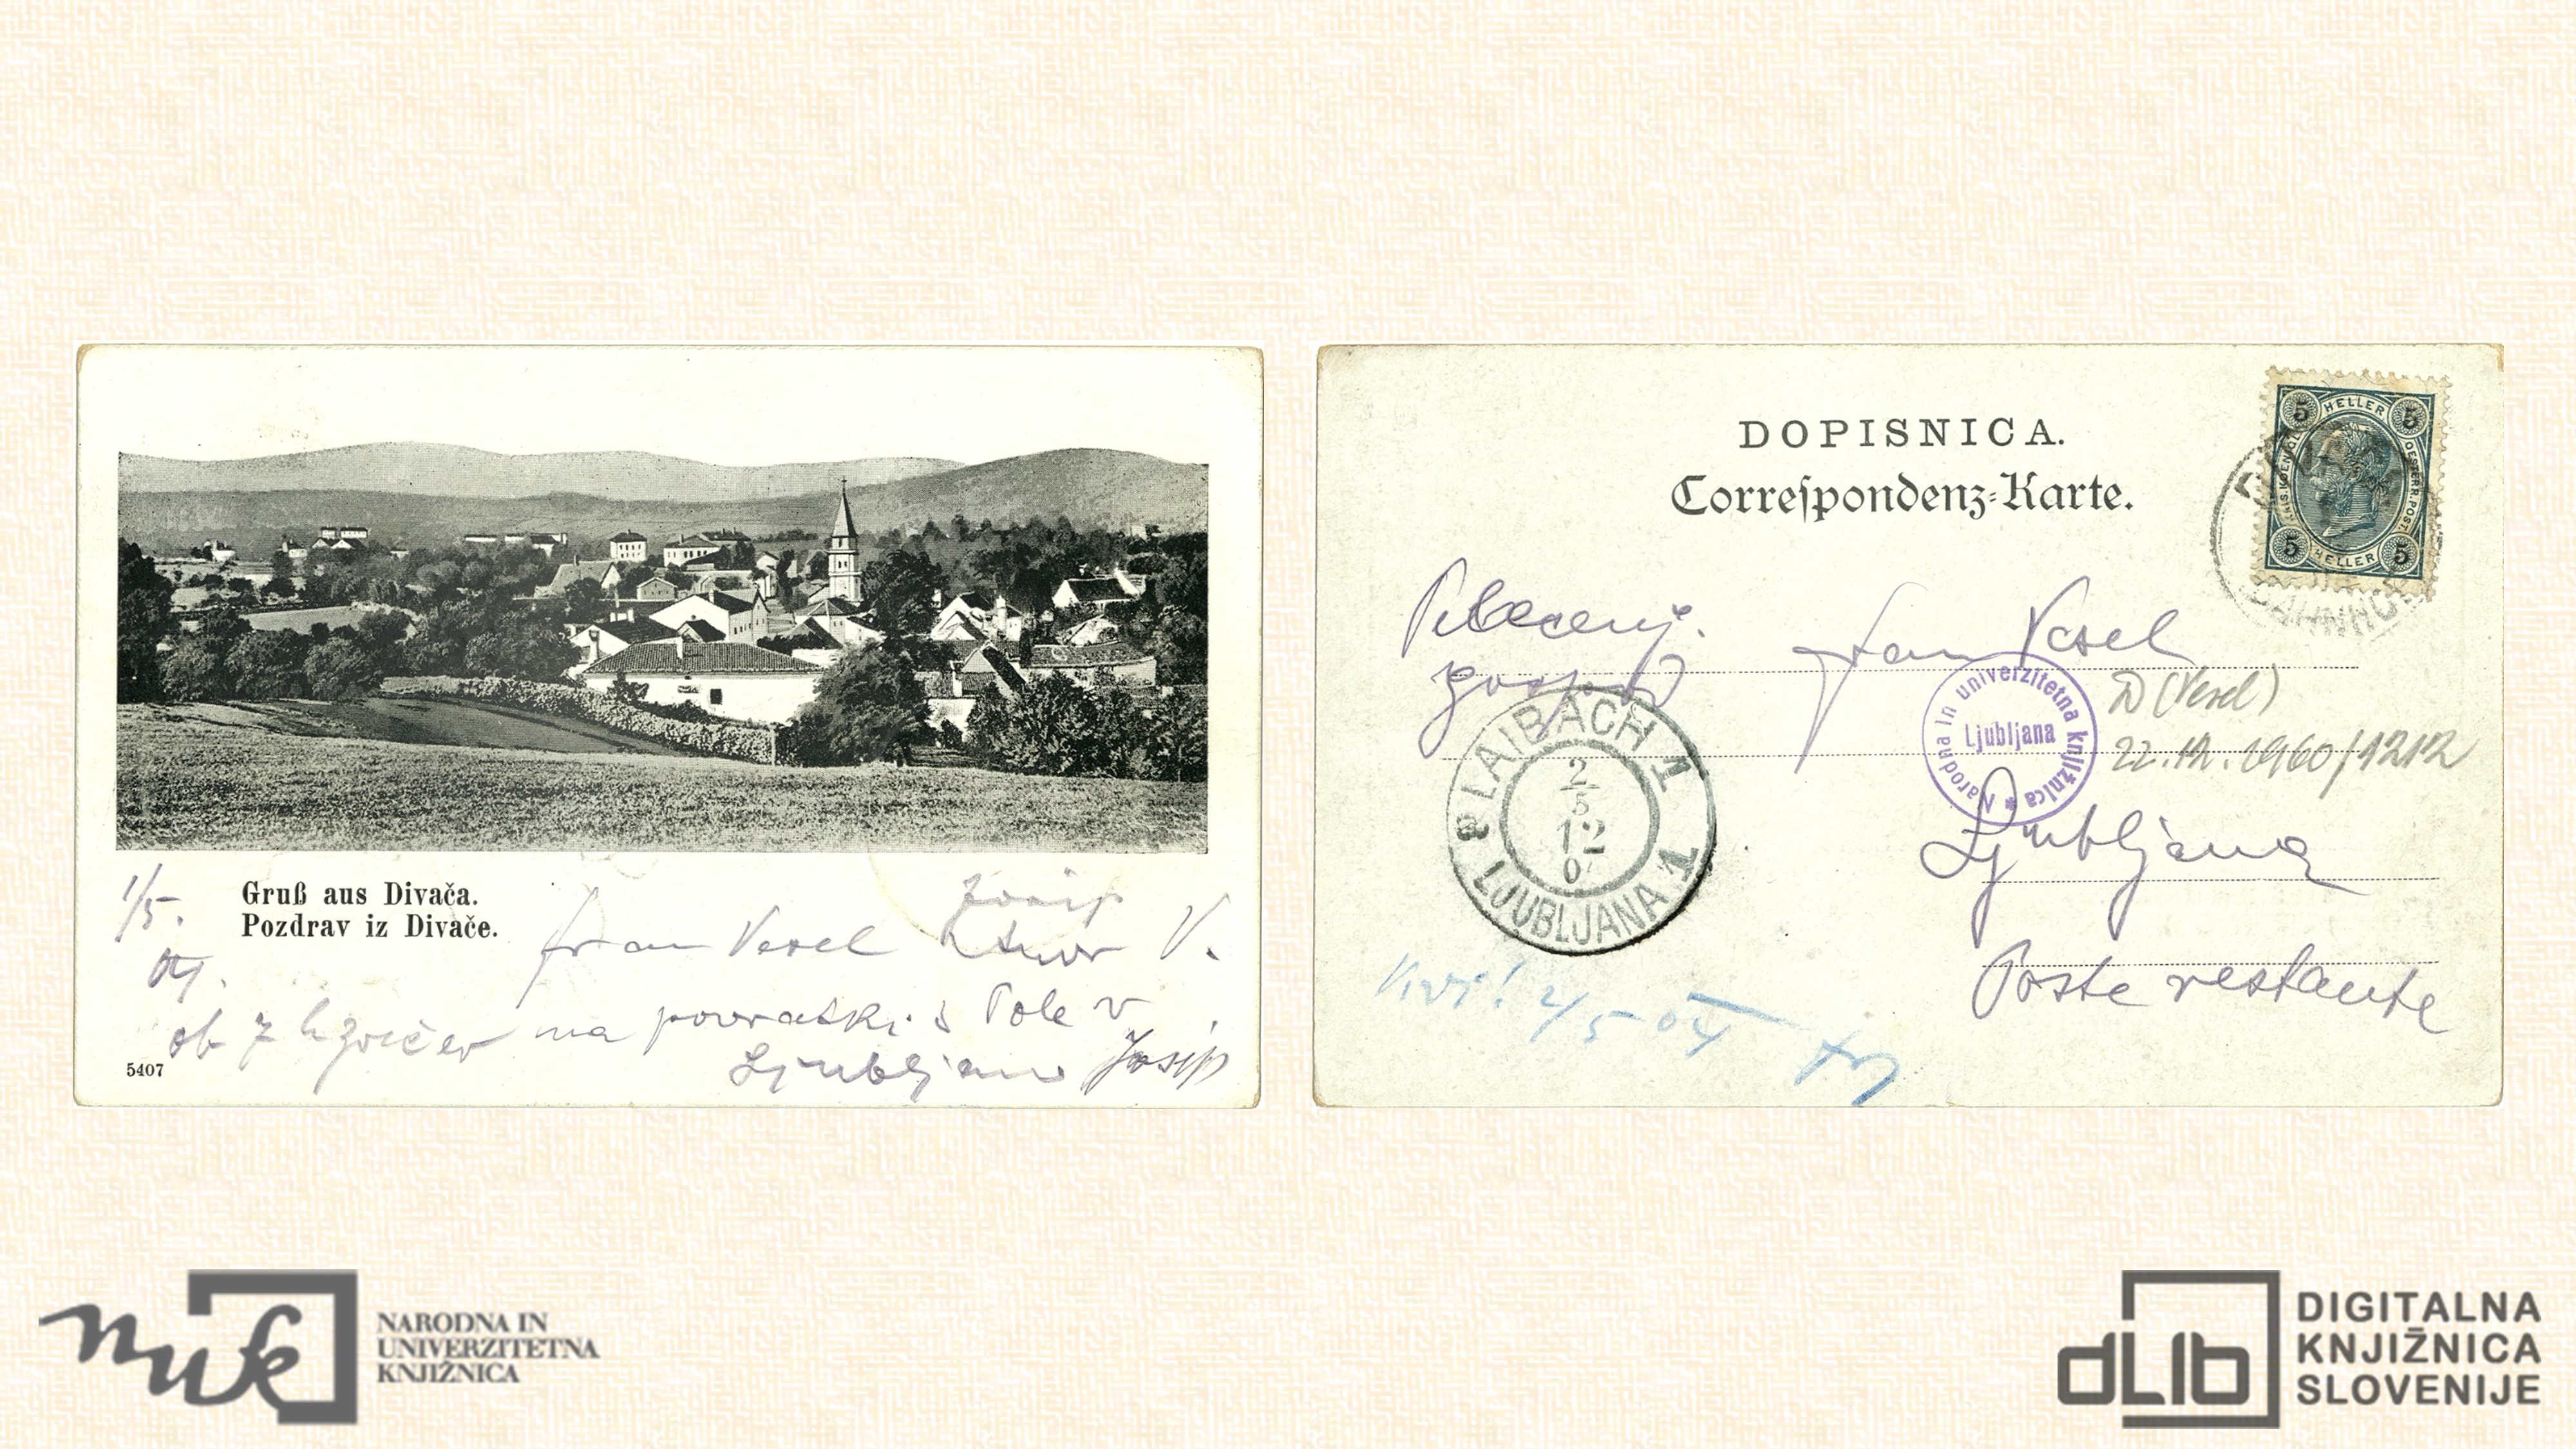 Gruß aus Divača.
Pozdrav iz Divače.
1/5.
04.
Fran Vesel
V.
ob 7h zvečer na povratki s Pole v
Ljubljano Josip
5407
DOPISNICA.
Correſpondenz-Karte.
5 HELLER 5
5 HELLER 5
Fran Vesel
Narodna in univerzitetna knjižnica
Ljubljana
D (Vesel)
22.12.1960/1212
LAIBACH 1
2
5
12
0
LJUBLJANA 1
Ljubljana
Poste restante
2/5 04
NARODNA IN
UNIVERZITETNA
KNJIŽNICA
nuk
dLib
DIGITALNA
KNJIŽNICA
SLOVENIJE